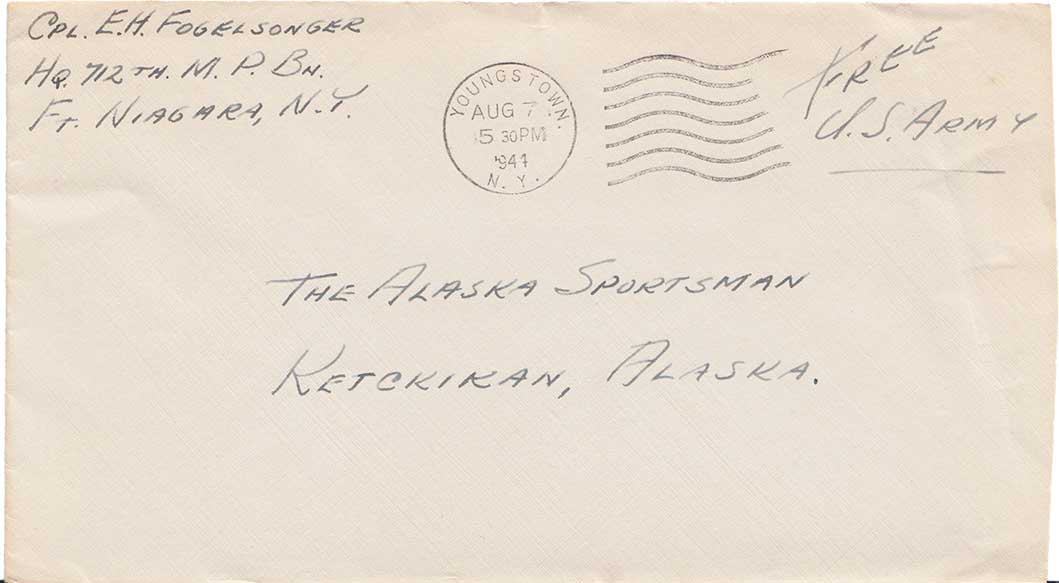 CPL. E.H. FOGELSONGER
HQ. 712TH. M. P. BN.
FT. NIAGARA, N.Y.
YOUNGSTOWN.
AUG 7
5 30PM
1944
N. Y.
FREE
U.S. ARMY
THE ALASKA SPORTSMAN
KETCKIKAN, ALASKA.